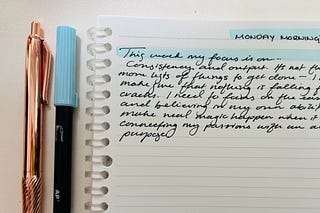 MONDAY MORNING
This week my focus is on...
Consistency. and output. It's not th
more lists of things to get done - I
make sure that nothing is falling f
cracks. I need to focus on the
and believing in my own abil
make real magic happen when i
connecting my passions with an a
purpose